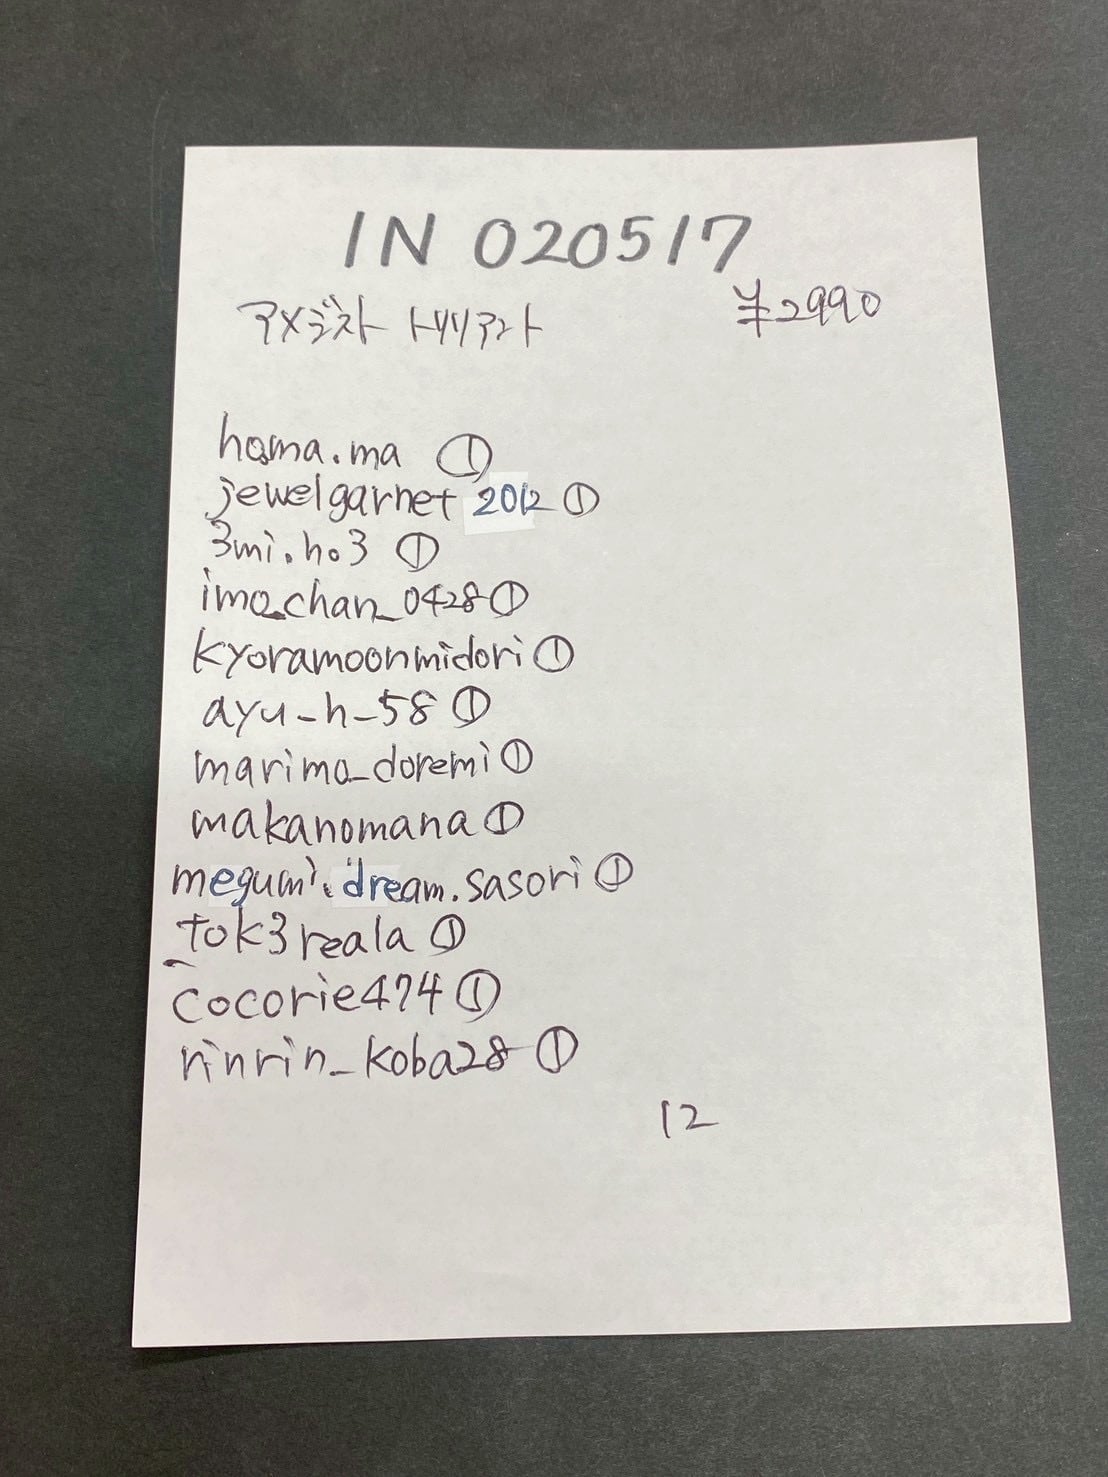 IN 020517
アメジスト トリリアント ¥2990
hama.ma ①
jewelgarnet 2012 ①
3mi.ho3 ①
imo_chan_0428 ①
kyoramoonmidori ①
ayu_h_58 ①
marimo_doremi ①
makanomana ①
megumi.dream.sasori ①
tok3reala ①
cocorie474 ①
rinrin_koba28 ①
12